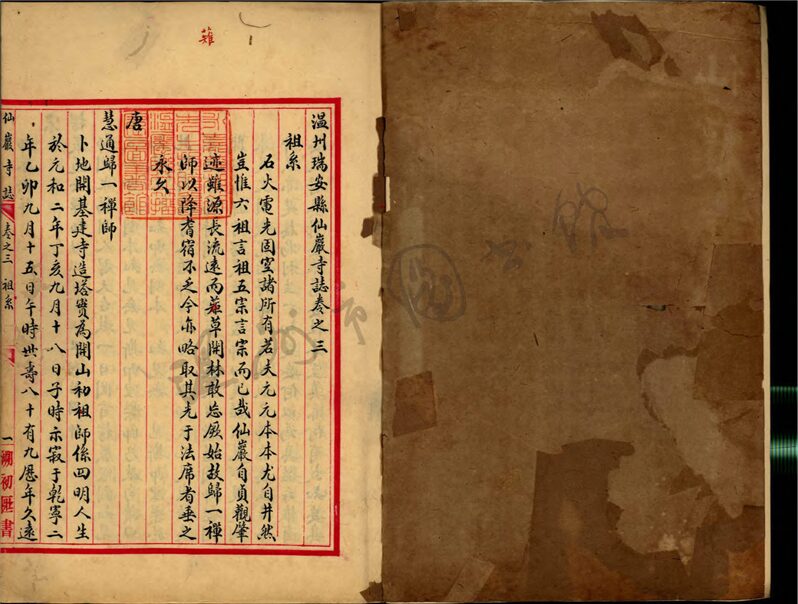 温州瑞安縣仙巖寺誌卷之三
祖系
石火電光固空諸所有若夫元元本本尤自井然
豈惟六祖言祖五宗言宗而已哉仙巖自貞觀肇
迹雖源長流遠而薙草開林敢忘厥始故歸一禪
師以降耆宿不乏今亦略取其光于法席者垂之
永久
唐
慧通歸一禪師
卜地開基建寺造塔實為開山初祖師係四明人生
於元和二年丁亥九月十八日子時示寂于乾寧二
年乙卯九月十五日午時世壽八十有九歷年久遠
仙巖寺誌 卷之三 祖系 一 湖初匯書
薙